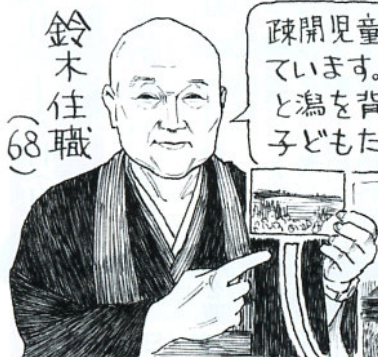 鈴木住職
(68)
疎開児童
ています。
と潟を背
子どもた